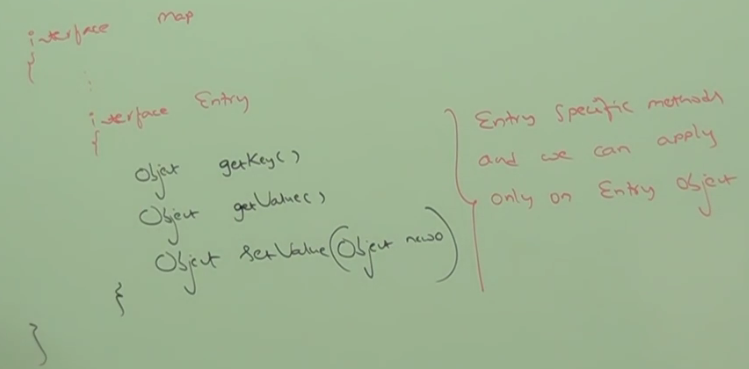 interface Map
{
:
interface Entry
{
Object getKey()
Object getValue()
Object setValue(Object newo)
}
}
Entry specific methods
and we can apply
only on Entry Object